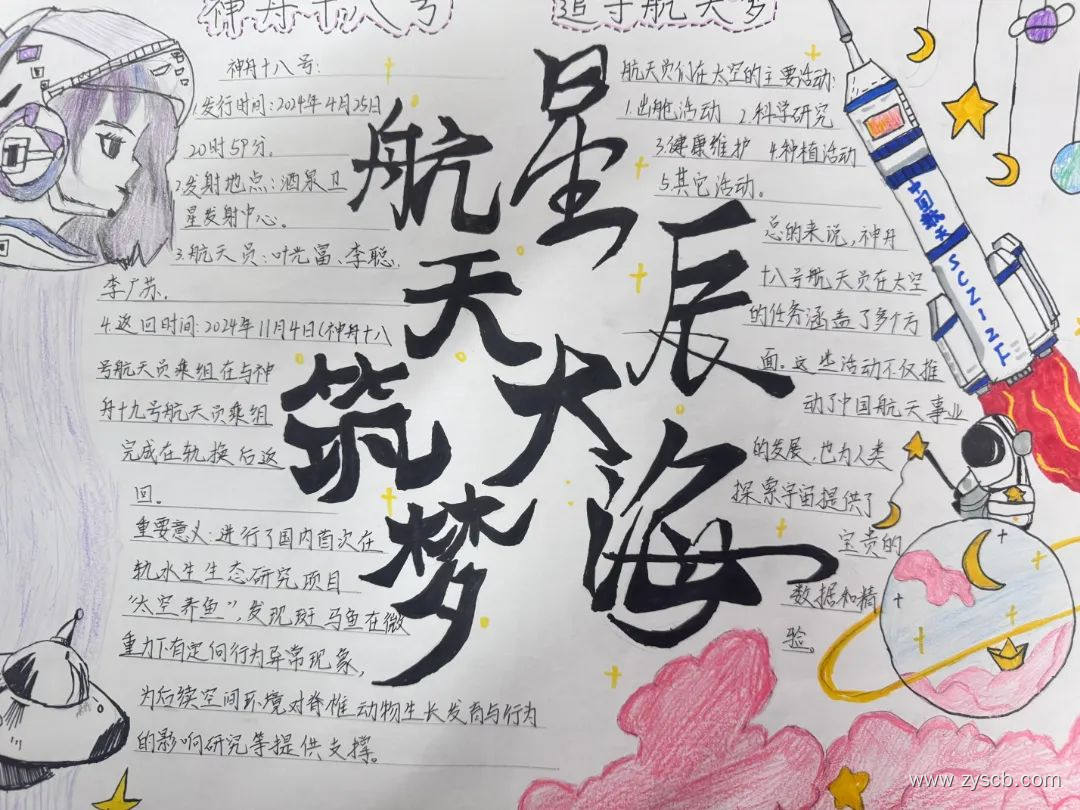 神舟十八号
追寻航天梦
神舟十八号:
1.发行时间:2024年4月25日
20时59分.
2.发射地点:酒泉卫
星发射中心。
3.航天员:叶光富、李聪,
李广苏.
4.返回时间:2024年11月4日(神舟十八
号航天员乘组在与神
舟十九号航天员乘组
完成在轨换后返
回。
重要意义:进行了国内首次在
轨水生生态研究项目
"太空养鱼",发现斑马鱼在微
重力下有定向行为异常现象,
为后续空间环境对脊椎动物生长发育与行为
的影响研究等提供支撑。
航天筑梦
星辰大海
航天员们在太空的主要活动:
1.出舱活动 2.科学研究
3.健康维护 4.种植活动
5.其它活动。
总的来说,神舟
十八号航天员在太空
的任务涵盖了多个方
面。这些活动不仅推
动了中国航天事业
的发展,也为人类
探索宇宙提供了
宝贵的
数据和精
验。
中国航天
www.zyscb.com